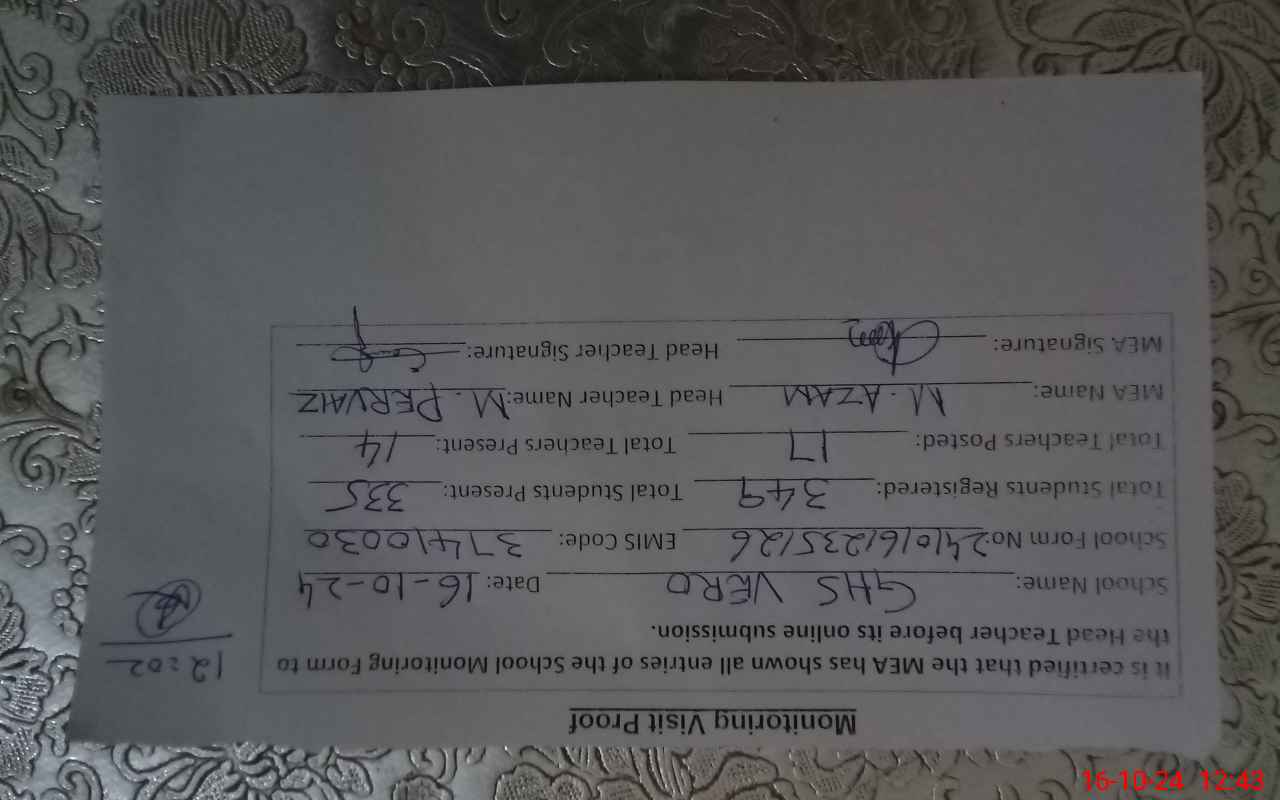 Monitoring Visit Proof
It is certified that the MEA has shown all entries of the School Monitoring Form to
the Head Teacher before its online submission.
12:02
School Name: GHS VERO Date: 16-10-24
School Form No: 2410161235126 EMIS Code: 37410030
Total Students Registered: 349 Total Students Present: 335
Total Teachers Posted: 17 Total Teachers Present: 14
MEA Name: M. AZAM Head Teacher Name: M. PERVAIZ
MEA Signature: Head Teacher Signature:
16-10-24 12:43